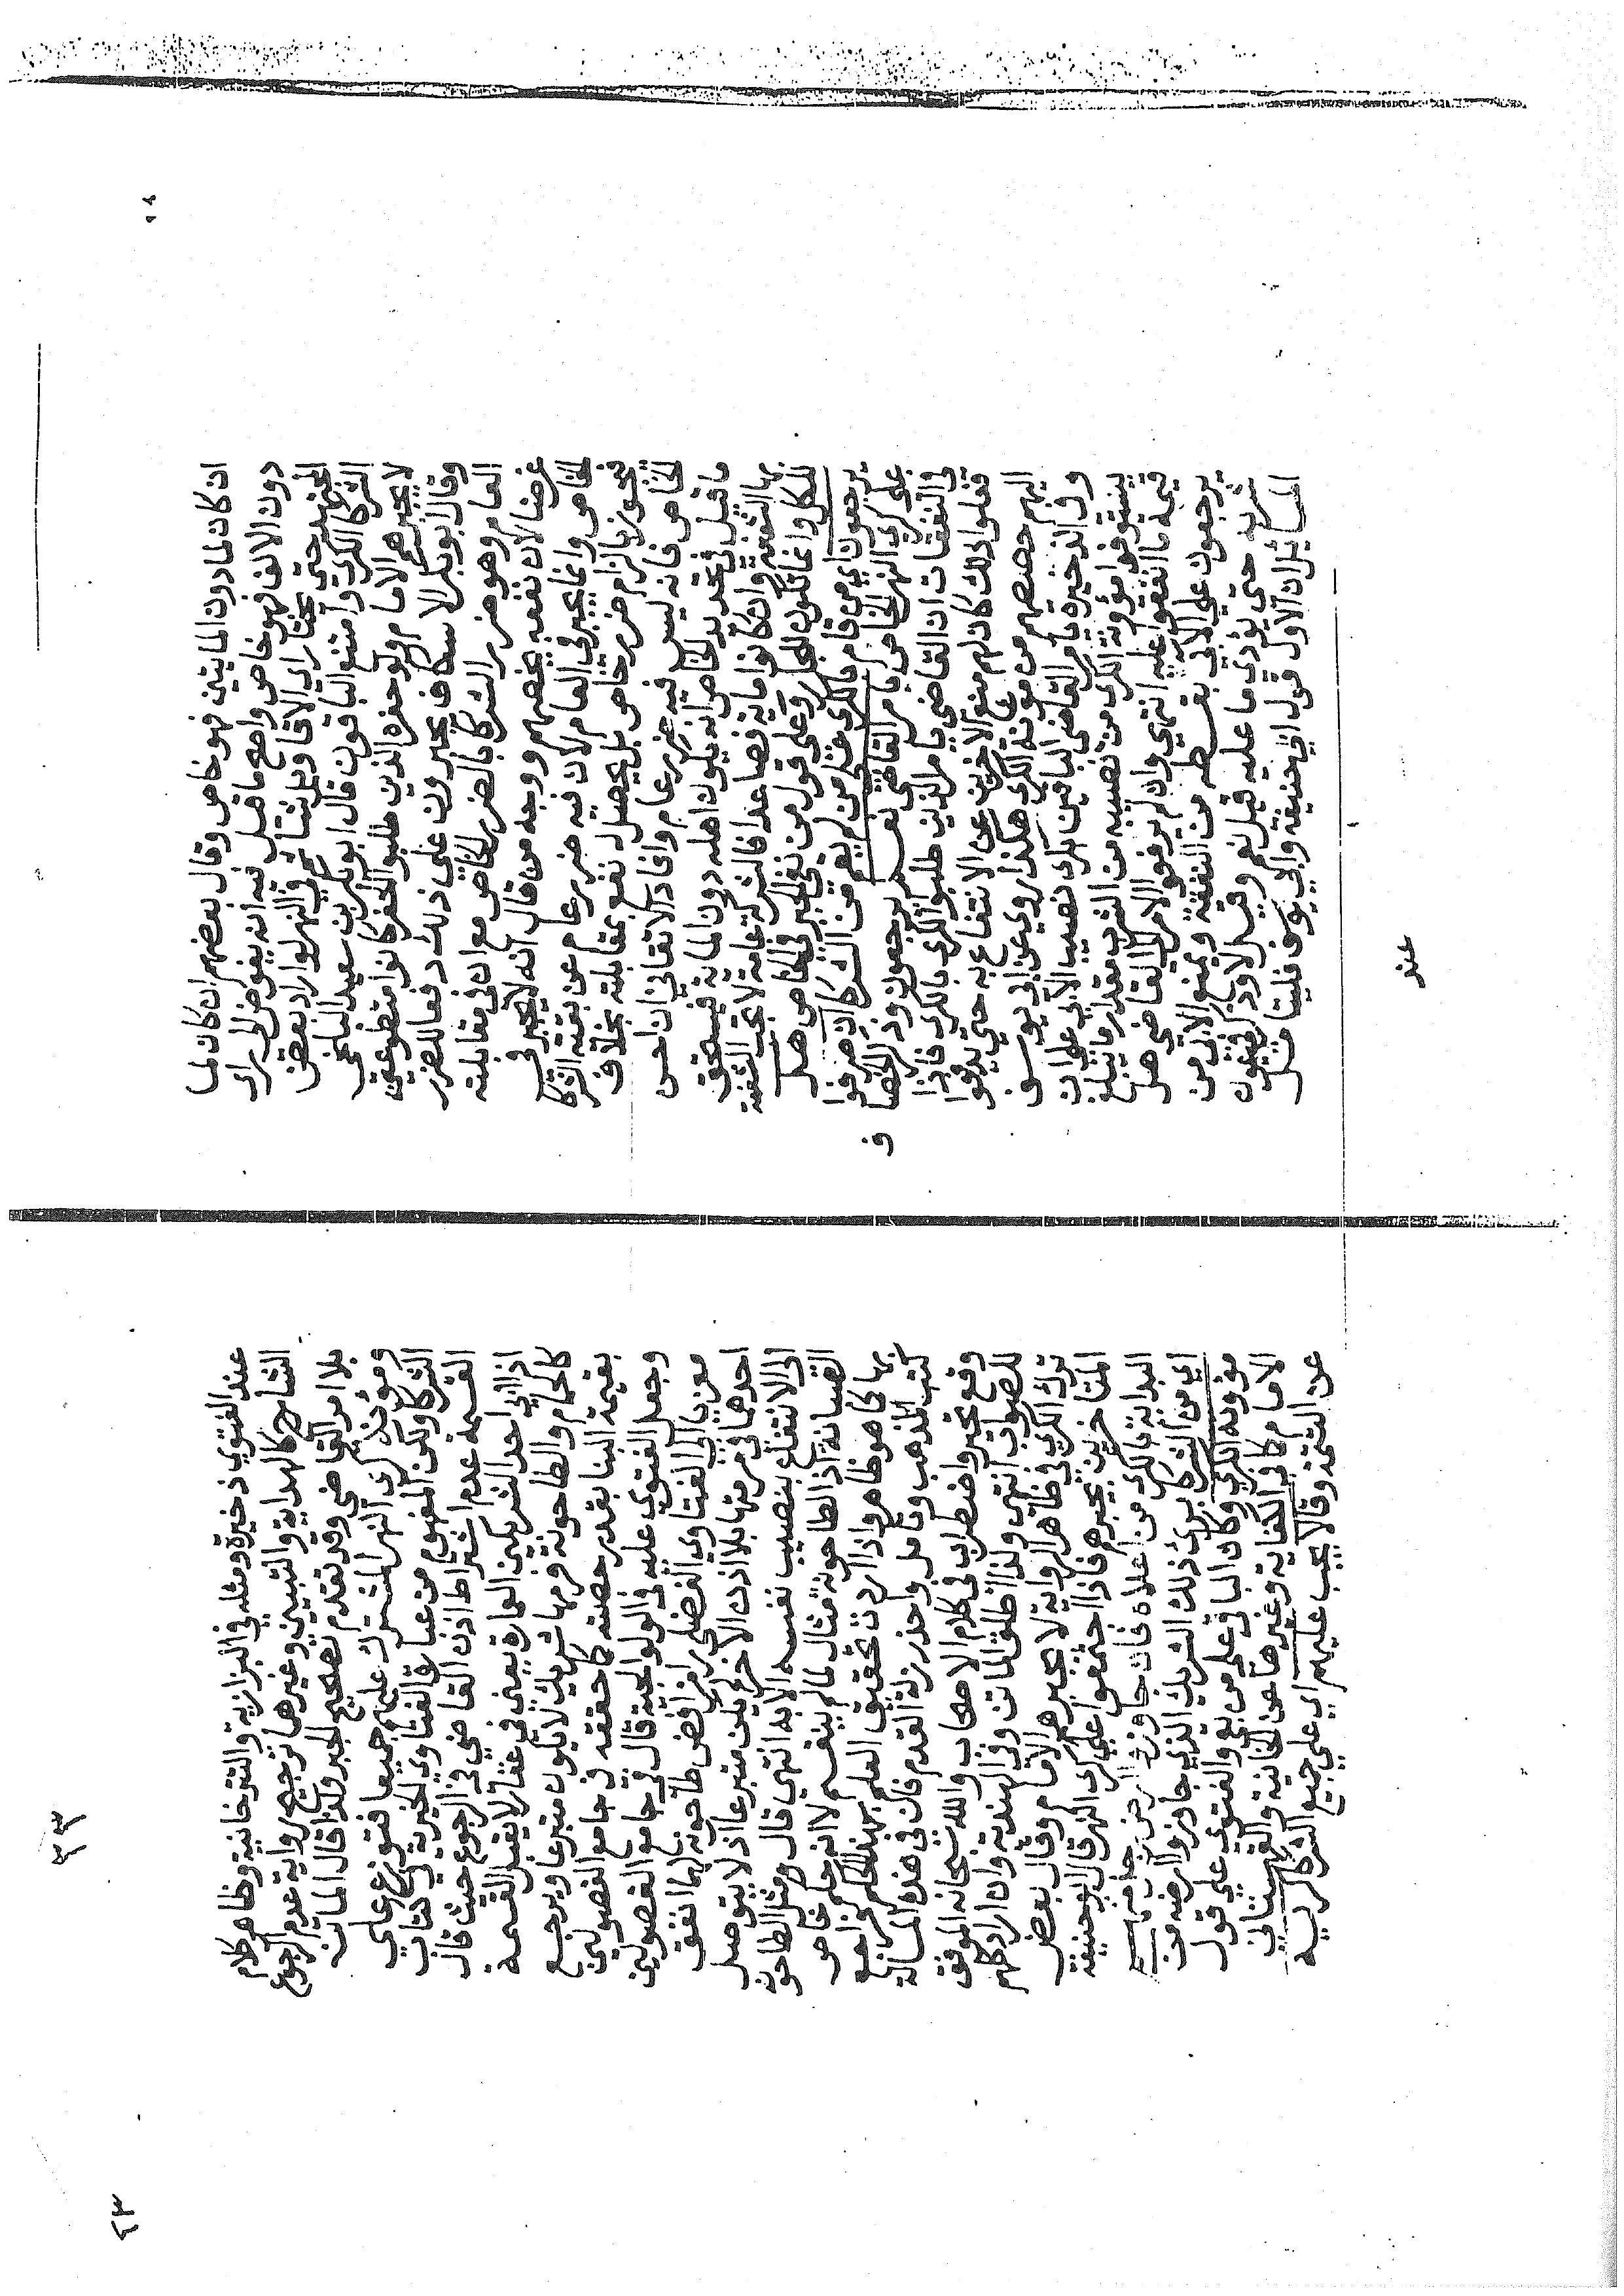 ان كان لما دون المايتين فهو خاص وقال بعضهم ان كان لما
دون الالف فهو خاص واصح ما قيل فيه انه يفوض الى راى
المجتهد حتى يختار اى الاقاويل شاء ثم في النهر لو اراد بعض
الشركا الكرى وامتنع الباقون قال ابو بكر بن سعيد البلخى
لا يجبرهم الامام ولو حفره الذين طلبوا الحفر كانوا متطوعين
وقال ابو بكر الاسكاف يجبرون على ذلك دفعا للضرر
العام وهو ضرر الشركا بالضرر الخاص مع ان في مقابلته
عوضا لان نفعه يخصهم ووجه من قال انه لا يجبر في
الخاص وانما يجبر في العام لان فيه ضرر عام عن بقية الشركا
فجوزنا الزام ضرر خاص بل يحصل له نفع بمقابلته بخلاف
الخاص فانه ليس فيه ضرر عام وافاد الاتقاني ان احسن
ما قيل في تحديد الخاص انه يكون اهله دون الماية فيستحق
بها الشفعة وان كانوا ماية فصاعدا فالشركة عامة لا تجب الشفعة
للكل وانما تكون للجار وعلى قول من نفى الجبر في الخاص هل
يرجعون اى من قام بالكرى على من لم يقم من الشركا ان صرفوا
على كرى النهر الخاص بامر القاضي نعم يرجعون وذكر الخصاف
في النفقات ان القاضي يامر الذين طلبوا الكرى بالكرى فاذا
فعلوا ذلك كان لهم منع الاخرين عن الانتفاع به حتى يدفعوا
اليهم حصتهم من مونة الكرى هكذا روى عن ابي يوسف
وفي الذخيرة يامر القاضي الباقين بكرى نصيب الآبى على ان
يستوفوا مؤونة الكرى من نصيبه من الشرب مقدار ما يبلغ
قيمة ما انفقوا عليه انتهى وان لم يرفعوا الامر الى القاضي هل
يرجعون على الآبى بقسطه من النفقة ويمنع الآبى من
شربه حتى يؤدى ما عليه قيل نعم وقيل لا وذكر في عيون
المسائل ان الاول قول ابي حنيفة وابي يوسف فليتامل
عند
عند الفتوى ذخيرة ومثله في البزازية والتترخانية وظاهر كلام
الشارح كالهداية والتبيين وغيرهما ترجيح رواية عدم الرجوع
بلا امر القاضي وقد تقدم تصحيح الجبر ولذا قال الماتن
ومؤنة كرى النهر المشترك عليهم جميعا فتوزع على
الشركا ولكن المفهوم من عبارة الفتاوى الخيرية في كتاب
القسمة عدم اشتراط اذن القاضي في الرجوع حيث قال
اذا ابى احد الشريكين العمارة يعنى في عقار لا يقبل القسمة
كالحمام والطاحونة فرمها شريك لا يكون متبرعا ويرجع
بقيمة البنا بقدر حصته كما حققه في جامع الفصولين
وجعل الفتوى عليه في الولوالجية قال في جامع الفصولين
معزيا الى الفتاوى الفضلى رامزا فض طاحونة لهما انفق
احدهما في مرمتها بلا اذن الاخر لم يكن متبرعا اذ لا يتوصل
الى الانتفاع بنصيب نفسه الا به انتهى قال ومثل الطاحونة
القسانة اذ الطاحونة مثال لما لم ينقسم لا انه حكم خاص
بها كما هو ظاهر واذا اردت تحقيق العلم بهذا الحكم فراجع
كتب المذهب وتامل واحذر زلة القدم فان في هذه المسالة
وقع تحير واضطراب في كلام الاصحاب والله سبحانه الموفق
للصواب انتهى ولذا اطلق الماتن وفي الهندية وان اراد كلهم
ترك الكرى في ظاهر الرواية لا يجبرهم الامام وقال بعض
المتاخرين يجبرهم فاذا اجتمعوا على كرى النهر قال ابو حنيفة
البداية بالكرى من اعلاه فان جاوز ارض رجل
اى من الشركا برئ ذلك الشريك الذي جاوزوا ارضه من
مؤونة الكرى وكان الباقى على من بقى والفتوى على قول
الامام كما في الكفاية وغيرها عن الخانية والقهستاني
عن التتمة وقالا يجب عليهم اى على جميع الشركا كريه